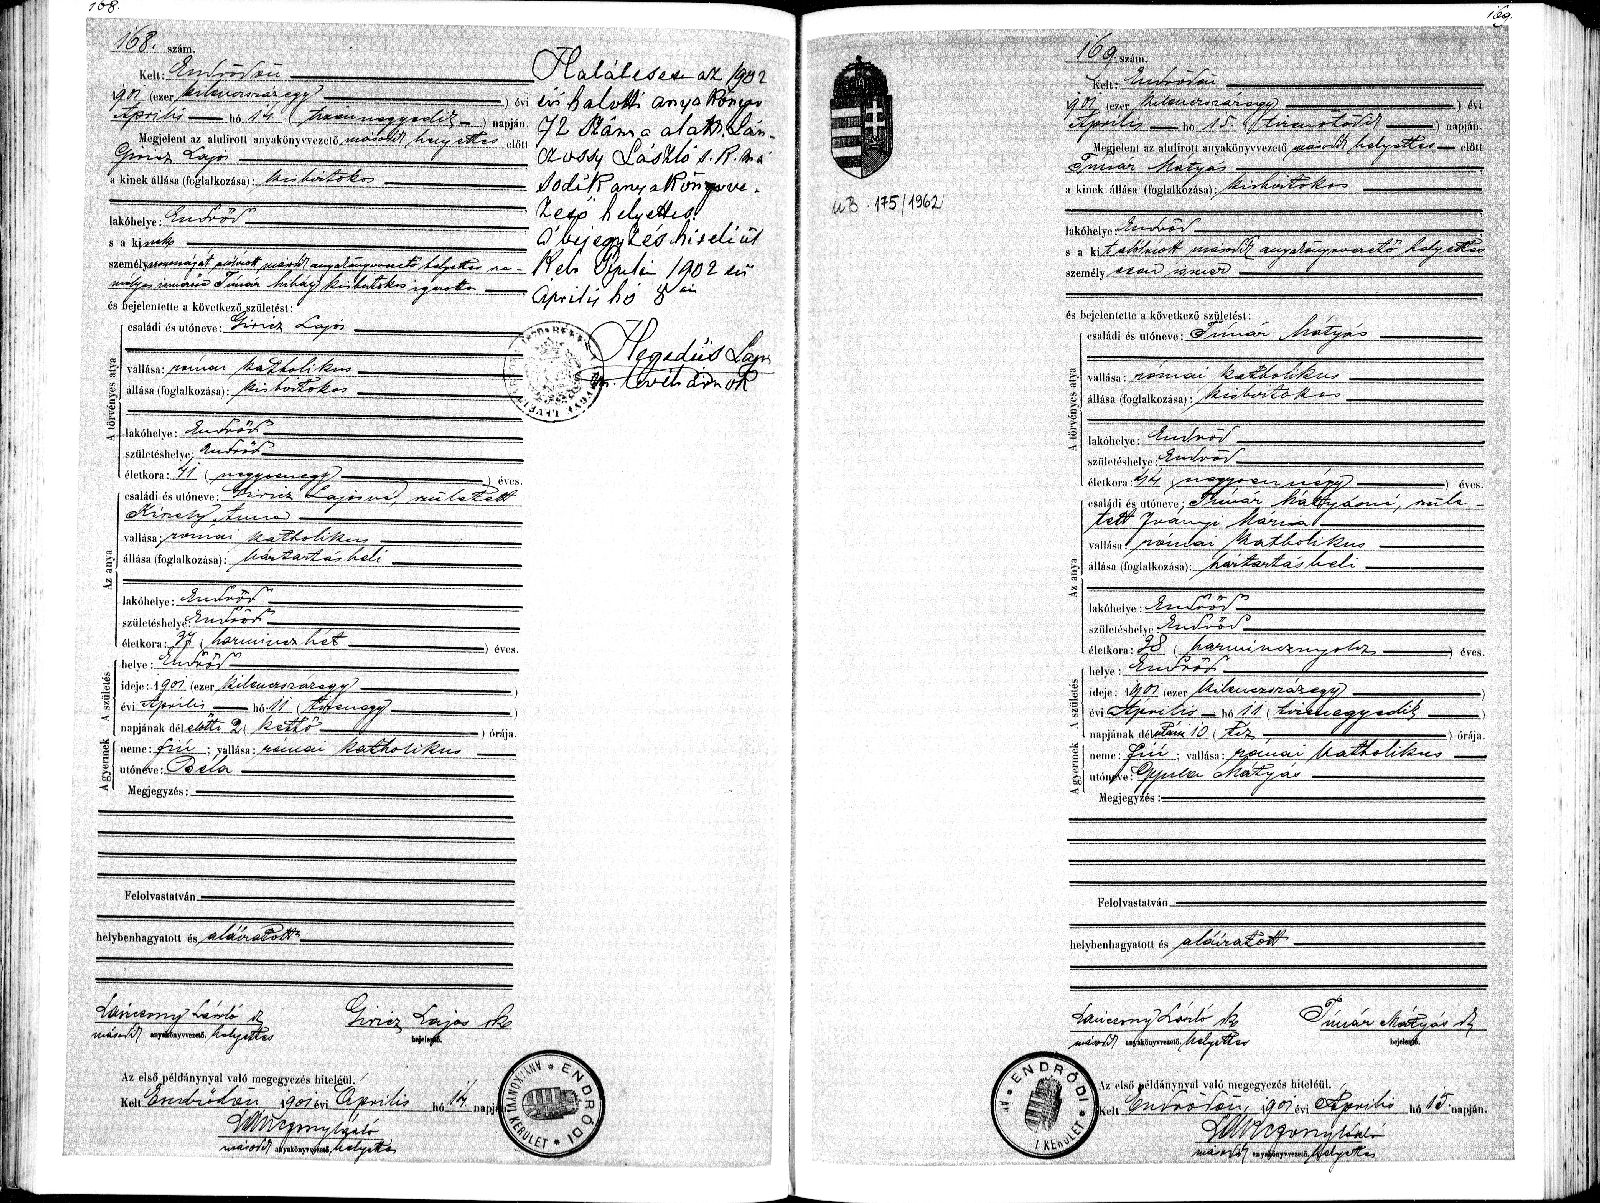 168.
168. szám.
Kelt: Endrődön
1901 (ezer kilenczszázegy) évi
Április hó 14. (tizennegyedik) napján.
Megjelent az alulirott anyakönyvvezető második helyettes előtt
Giricz Lajos
a kinek állása (foglalkozása): kisbirtokos
lakóhelye: Endrőd
s a ki nek
személyazonosságát alulirott második anyakönyvvezető helyettes
Timár Mihály kisbirtokos igazolta
és bejelentette a következő születést:
A törvényes atya
családi és utóneve: Giricz Lajos
vallása: római katholikus
állása (foglalkozása): kisbirtokos
lakóhelye: Endrőd
születéshelye: Endrőd
életkora: 41 (negyvenegy) éves.
Az anya
családi és utóneve: Giricz Lajosné, született
Király Anna
vallása: római katholikus
állása (foglalkozása): háztartásbeli
lakóhelye: Endrőd
születéshelye: Endrőd
életkora: 37 (harminczhét) éves.
A születés
helye: Endrőd
ideje: 1901 (ezer kilenczszázegy)
évi Április hó 11 (tizenegy)
napjának dél előtti 2 (kettő) órája.
A gyermek
neme: fiú; vallása: római katholikus
utóneve: Béla
Megjegyzés:
Felolvastatván
helybenhagyatott és aláiratott
Lánczony László sk
második anyakönyvvezető helyettes
Giricz Lajos sk
bejelentő.
Az első példánynyal való megegyezés hiteléül.
Kelt Endrődön 1901 évi Április hó 14 napján
Lánczony László
második anyakönyvvezető, helyettes
ENDRŐDI ANYAKÖNYVI I KERÜLET
Halálesete az 1902
évi halotti anyakönyv
72 száma alatt. Lán-
czossy László s. k. má
sodik anyakönyvve-
zető helyettes
A bejegyzés hiteléül
Kelt Gyulán 1902 évi
április hó 8 án
Hegedűs Lajos
m. levéltárnok
169.
169. szám.
Kelt: Endrődön
1901 (ezer kilenczszázegy) évi
Április hó 15. (tizenötödik) napján.
Megjelent az alulirott anyakönyvvezető második helyettes előtt
Timár Mátyás
a kinek állása (foglalkozása): kisbirtokos
lakóhelye: Endrőd
s a ki t alulirott második anyakönyvvezető helyettes
személyesen ismer
és bejelentette a következő születést:
A törvényes atya
családi és utóneve: Timár Mátyás
vallása: római katholikus
állása (foglalkozása): kisbirtokos
lakóhelye: Endrőd
születéshelye: Endrőd
életkora: 44 (negyvennégy) éves.
Az anya
családi és utóneve: Timár Mátyásné, szüle-
tett Iványi Mária
vallása: római katholikus
állása (foglalkozása): háztartásbeli
lakóhelye: Endrőd
születéshelye: Endrőd
életkora: 38 (harmincznyolcz) éves.
A születés
helye: Endrőd
ideje: 1901 (ezer kilenczszázegy)
évi Április hó 11 (tizenegyedik)
napjának dél után 10 (tiz) órája.
A gyermek
neme: fiú; vallása: római katholikus
utóneve: Gyula Mátyás
Megjegyzés:
Felolvastatván
helybenhagyatott és aláiratott
Lánczony László sk
második anyakönyvvezető, helyettes
Timár Mátyás sk
bejelentő.
Az első példánynyal való megegyezés hiteléül.
Kelt Endrődön, 1901 évi Április hó 15 napján.
Lánczony László
második anyakönyvvezető, helyettes
ENDRŐDI I KERÜLET
UB. 175/1962